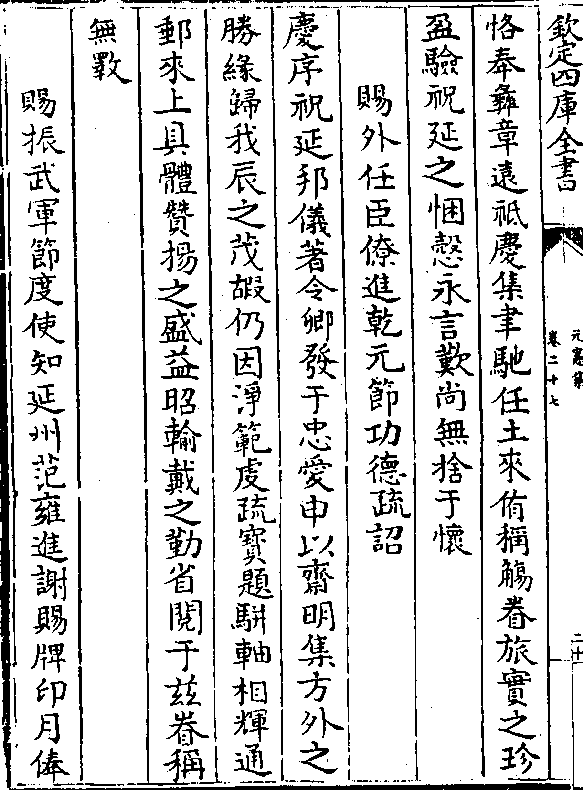 欽定四庫全書
元憲集
卷二十七
二十
恪奉彝章遠祗慶集聿馳任土來侑稱觴眷旅實之珍
盈驗祝延之悃慤永言歎尚無捨于懷
賜外任臣僚進乾元節功德疏詔
慶序祝延邦儀著令卿發于忠愛申以齋明集方外之
勝緣歸我辰之茂嘏仍因淨範虔疏寳題駢軸相輝通
郵來上具體贊揚之盛益昭輸戴之勤省閱于兹眷稱
無斁
賜振武軍節度使知延州范雍進謝賜牌印月俸